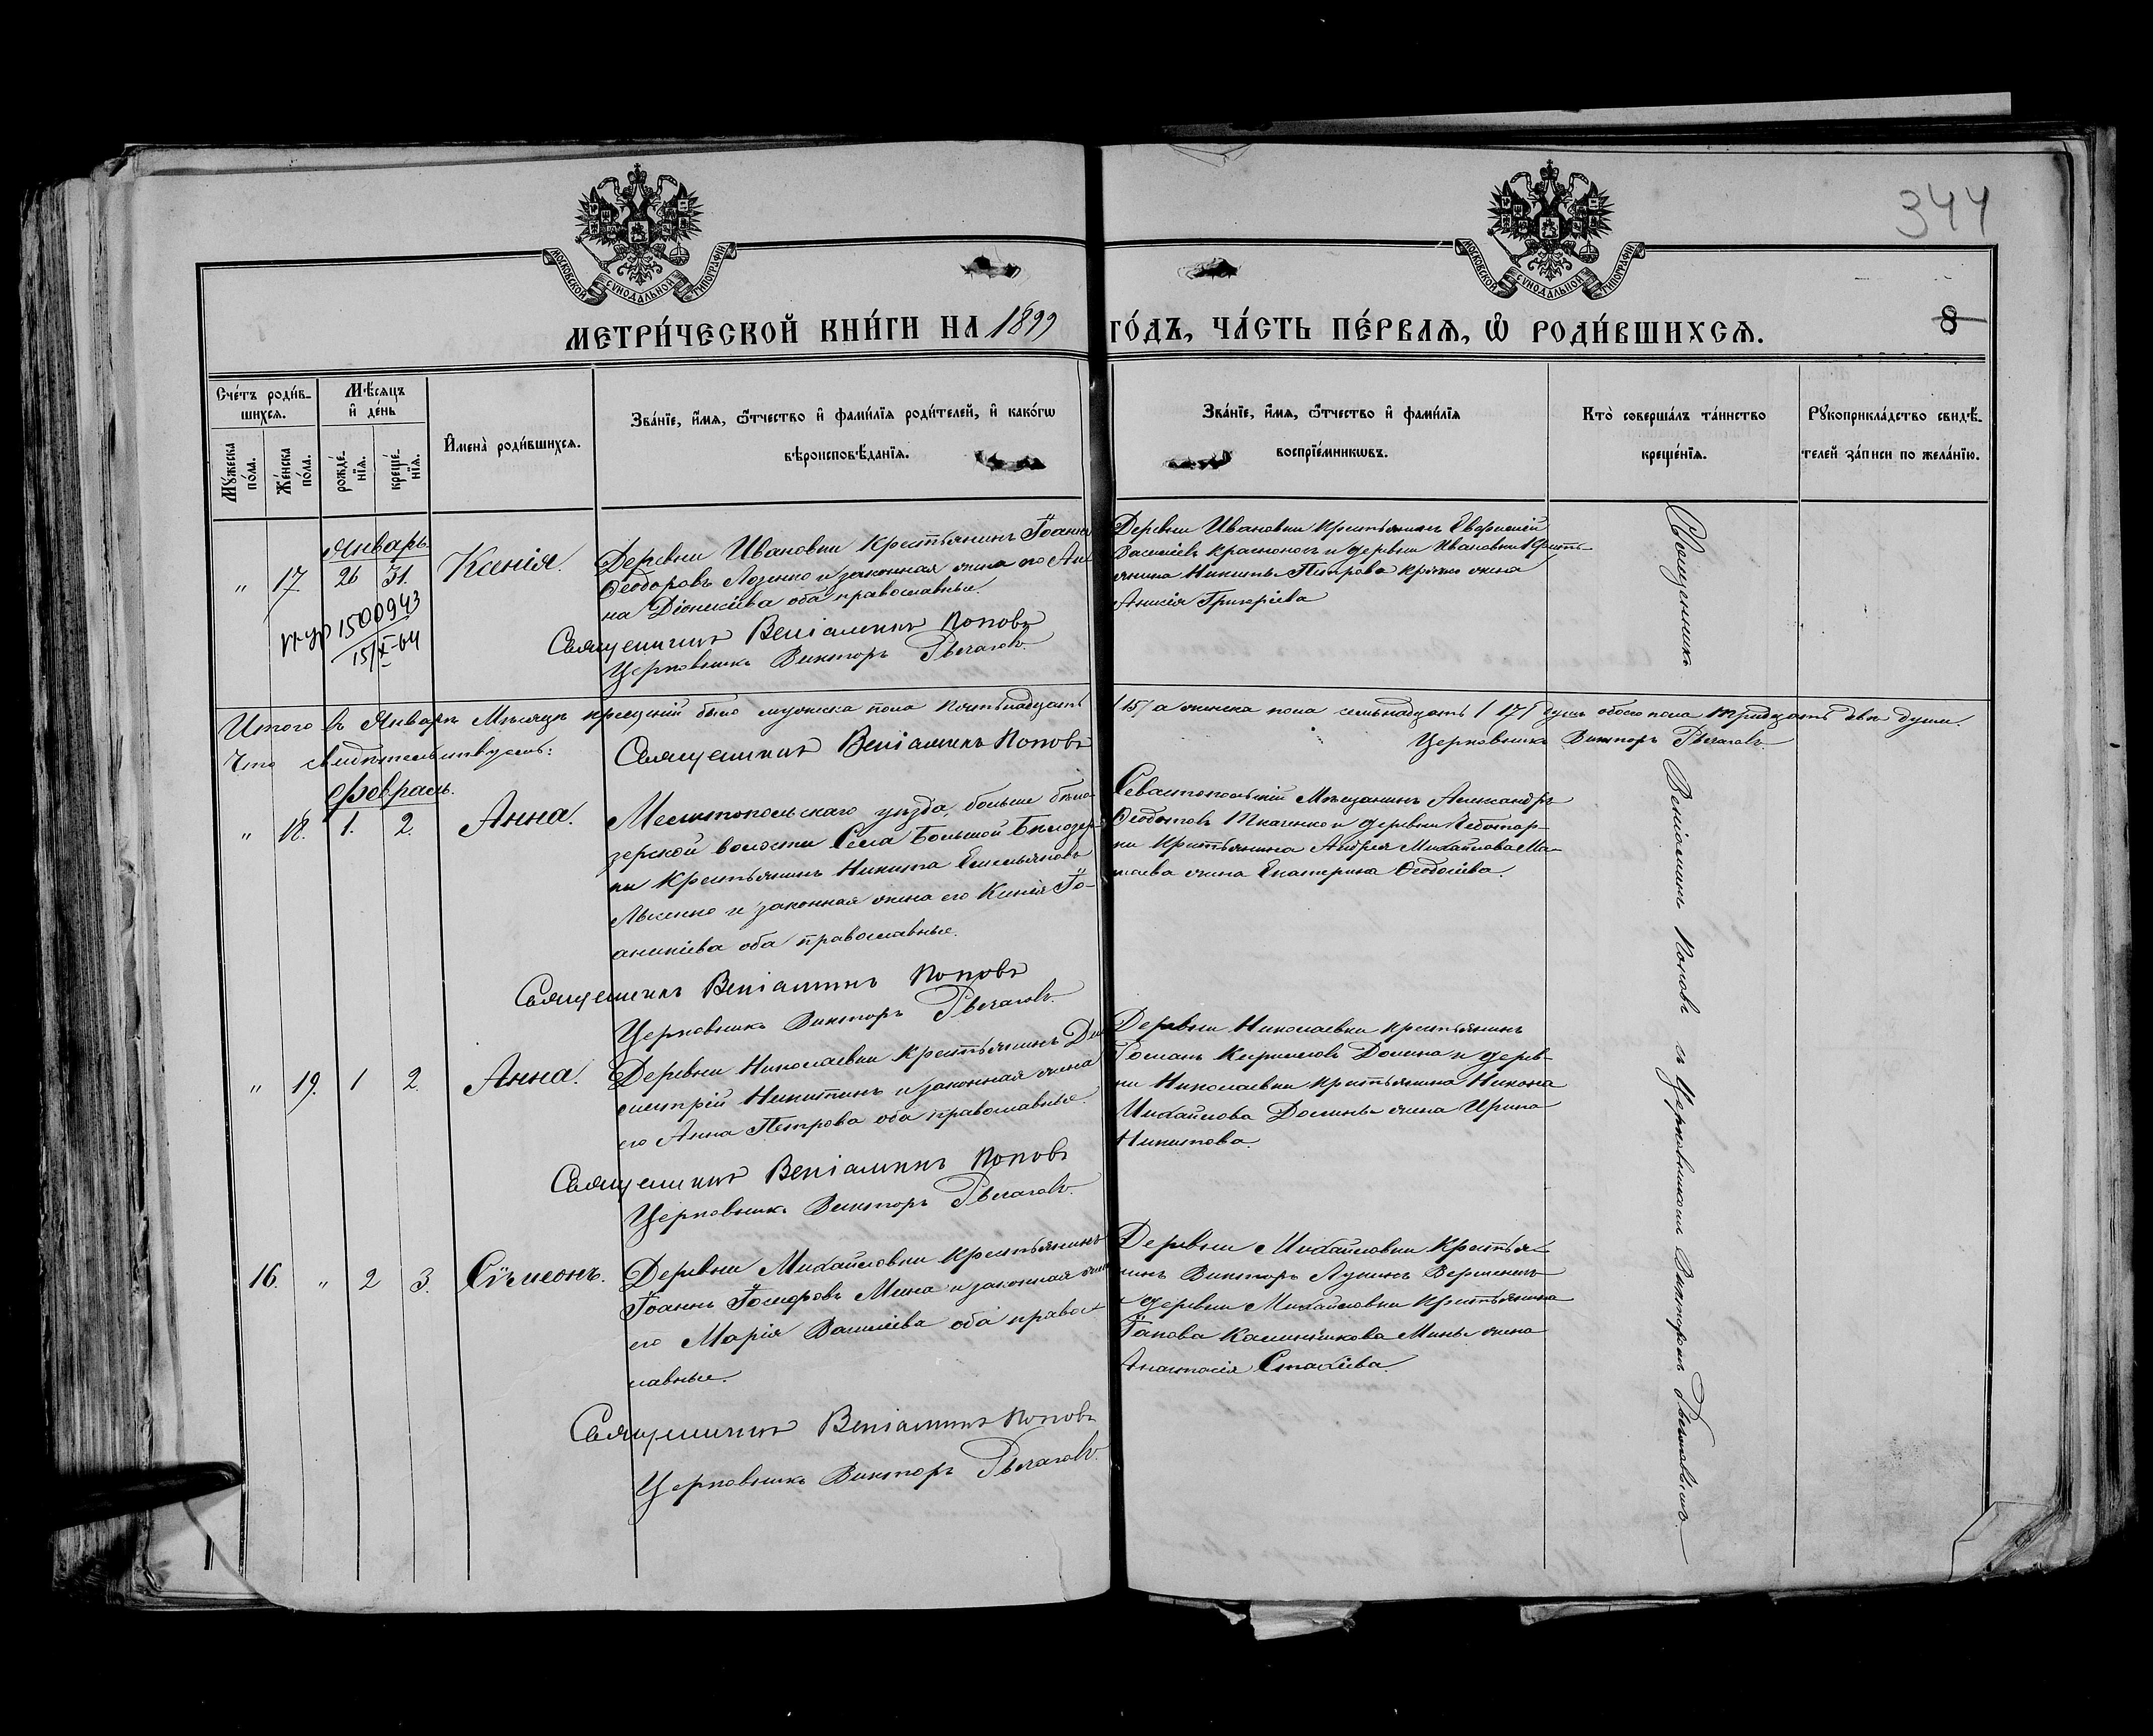 344
МОСКОВСКОЙ СУНОДАЛЬНОЙ ТИПОГРАФІИ
МОСКОВСКОЙ СУНОДАЛЬНОЙ ТИПОГРАФІИ
МЕТРИ́ЧЕСКОЙ КНИ́ГИ НА 1899 ГО́ДЪ, ЧА́СТЬ ПЕ́РВАѦ, Ѡ РОДИ́ВШИХСѦ.
8
Сче́тъ роди́в-
шихсѧ.
Мѣ́сѧцъ
и҆ де́нь
Мꙋ́жеска
по́ла.
Же́нска
по́ла.
рожде́-
нїѧ.
креще́-
нїѧ.
И҆мена̀ роди́вшихсѧ.
Зва́нїе, и҆́мѧ, ѻ҆́тчество и҆ фами́лїѧ роди́телей, и҆ како́гѡ
вѣроисповѣ́данїѧ.
Зва́нїе, и҆́мѧ, ѻ҆́тчество и҆ фами́лїѧ
воспрїе́мникѡвъ.
Кто̀ соверша́лъ та́инство
креще́нїѧ.
Рꙋкоприкла́дство свидѣ́-
телей за́писи по жела́нїю.
Январь.
" 17 26 31. Ксенія.
Деревни Ивановки крестьянинъ Іоаннъ
Ѳеодоровъ Лозенко и законная жена его Ан-
на Діонисіева оба православные.
Священникъ Веніаминъ Поповъ
Церковникъ Викторъ Рычаговъ.
1500943
15/X-64
Деревни Ивановки крестьянинъ Евфимій
Василіевъ Красноносъ и деревни Ивановки кресть-
янина Никиты Петрова жена
Анисія Григоріева
Священникъ
Итого въ Январѣ Мѣсяцѣ крещеній было мужеска пола пятьнадцать /15/ а женска пола семьнадцать /17/ обоего пола тридцать двѣ души.
Что свидѣтельствуемъ: Священникъ Веніаминъ Поповъ Церковникъ Викторъ Рычаговъ
Февраль.
" 18. 1. 2. Анна.
Мелитопольскаго уѣзда, больше бѣло-
зерской волости Села Большой Бѣлозер-
ки крестьянинъ Никита Емельяновъ
Лысенко и законная жена его Ксенія Іо-
аникіева оба православные.
Священникъ Веніаминъ Поповъ
Церковникъ Викторъ Рычаговъ.
Севастопольскій Мѣщанинъ Александръ
Ѳеодотовъ Ткаченко и деревни Чеботар-
ки крестьянина Андрея Михайлова Ма-
жена Екатерина Ѳеодосіева.
Веніаминъ Поповъ съ Церковникомъ Викторомъ Рычаговымъ.
" 19. 1 2. Анна.
Деревни Николаевки крестьянинъ Ди-
митрій Никитинъ и законная жена
его Анна Петрова оба православные.
Священникъ Веніаминъ Поповъ
Церковникъ Викторъ Рычаговъ.
Деревни Николаевки крестьянинъ
Романъ Кириловъ Долина и дерев-
ни Николаевки крестьянина Никона
Михайлова Долины жена Ирина
Никитова.
16. " 2 3. Сѵмеонъ.
Деревни Михайловки крестьянинъ
Іоаннъ Мина и законная жена
его Марія Василіева оба право-
славные.
Священникъ Веніаминъ Поповъ
Церковникъ Викторъ Рычаговъ.
Деревни Михайловки крестья-
нинъ Викторъ Лукинъ
и деревни Михайловки крестьянина
Іакова Калинникова Мины жена
Анастасія Стахіева.